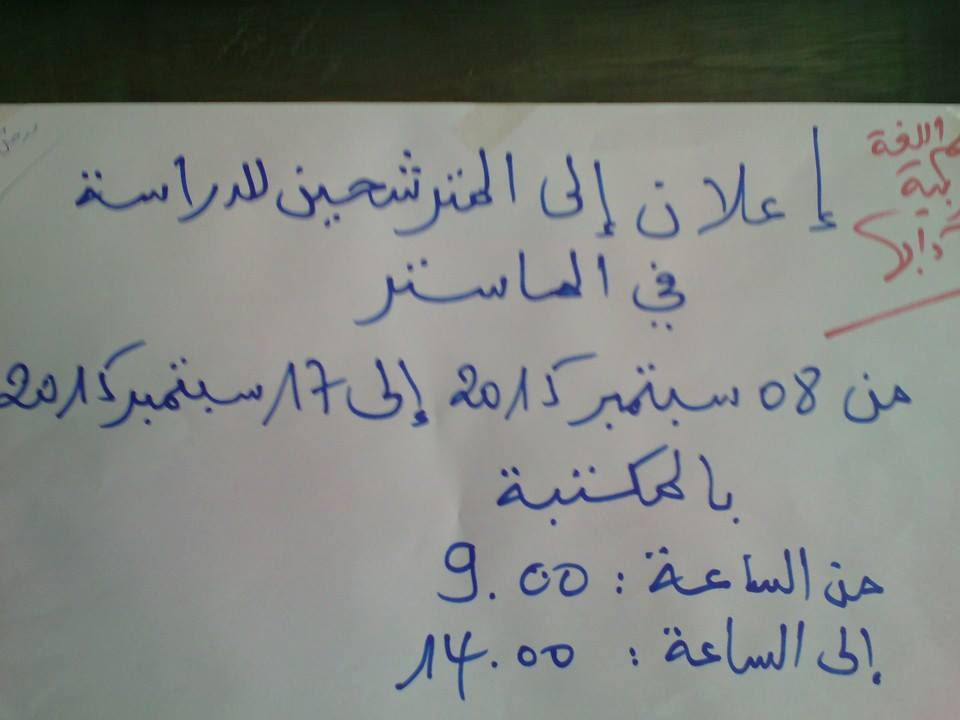 إعلان إلى المترشحين للدراسة
في الماستر
من 08 سبتمبر 2015 إلى 17 سبتمبر 2015
بالمكتبة
من الساعة : 9.00
إلى الساعة : 14.00
واللغة